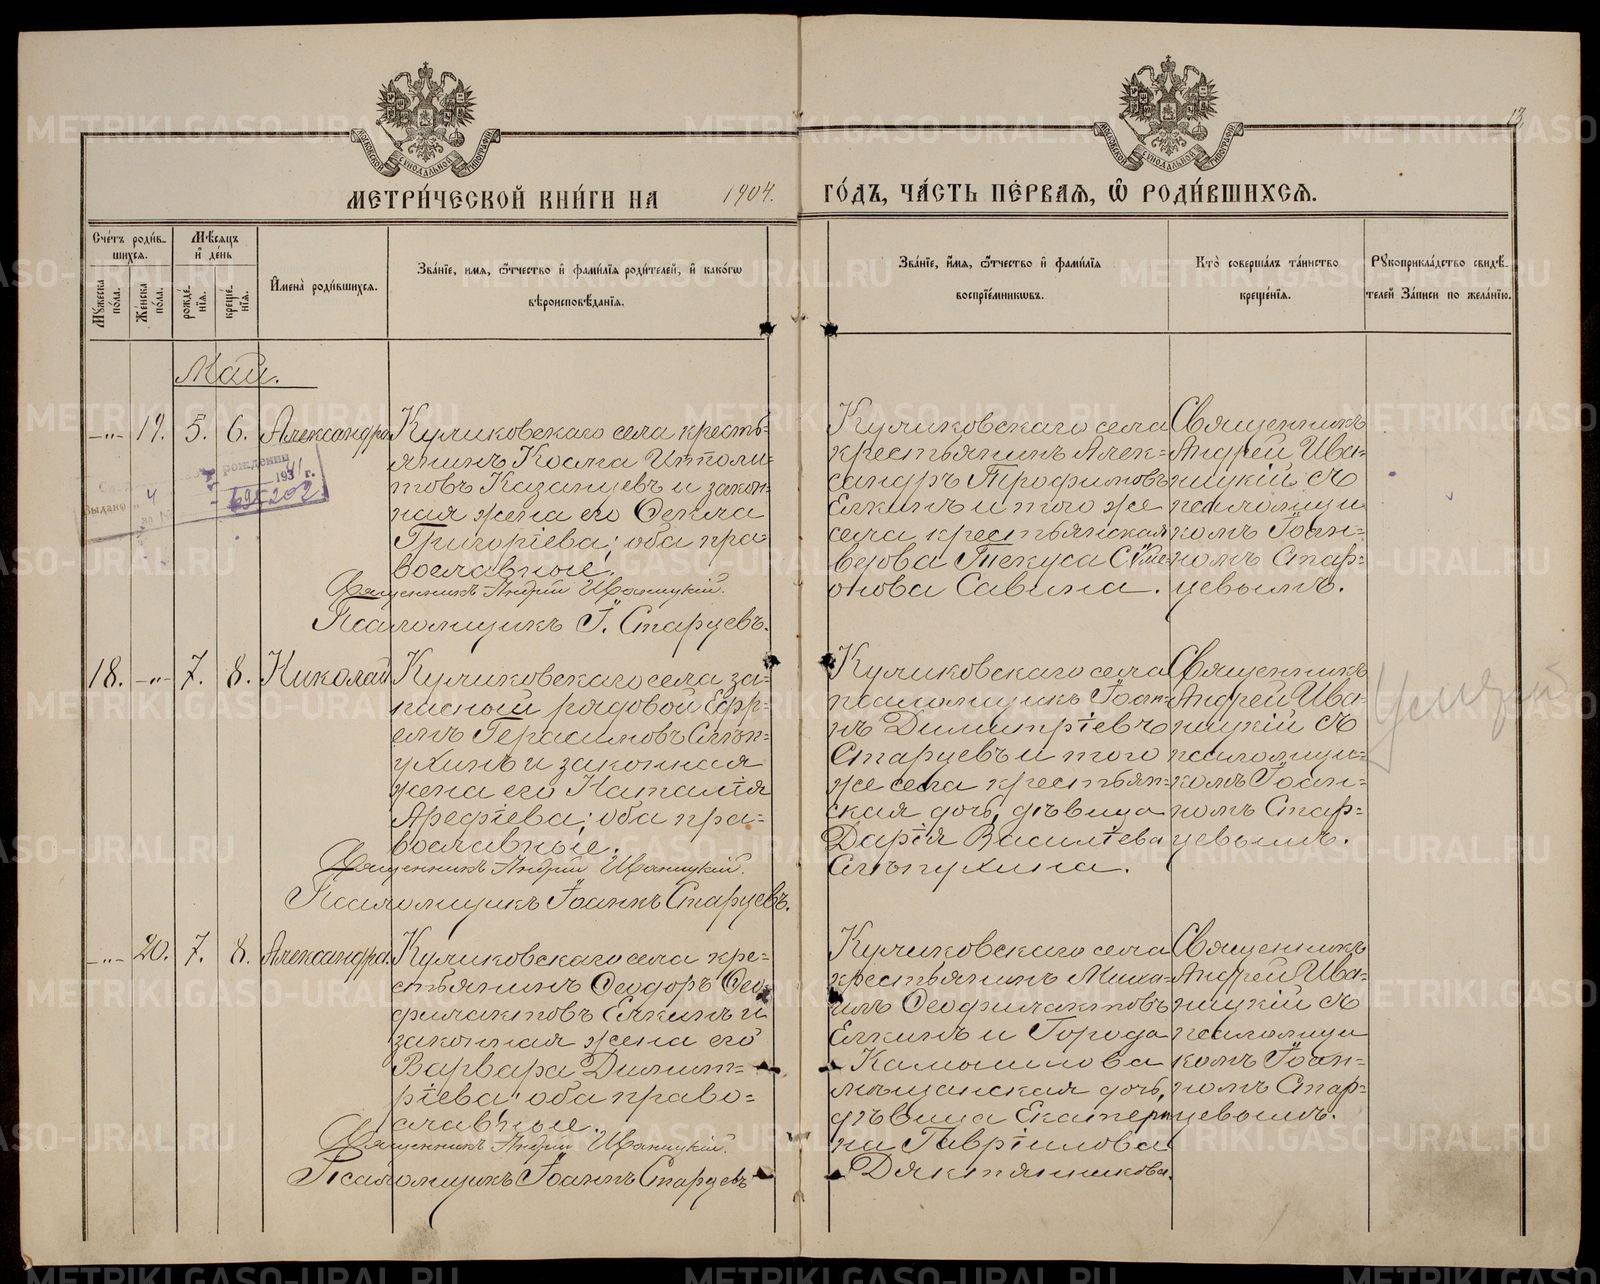 13
МОСКОВСКОЙ СѴНОДАЛЬНОЙ ТИПОГРАФІИ
МОСКОВСКОЙ СѴНОДАЛЬНОЙ ТИПОГРАФІИ
МЕТРИ́ЧЕСКОЙ КНИ́ГИ НА 1904. ГО́ДЪ, ЧА́СТЬ ПЕ́РВАЯ, Ѡ РОДИ́ВШИХСЯ.
Сче́тъ роди́в-
шихся.
Му́жеска по́ла.
Же́нска по́ла.
Мѣ́сяцъ
и҆ де́нь
рожде́-
нїя.
креще́-
нїя.
И҆мена̀ роди́вшихся.
Зва́нїе, и́мя, ѻ҆́тчество и҆ фами́лїя роди́телей, и҆ како́гѡ
вѣроисповѣ́данїя.
Зва́нїе, и҆́мя, ѻ҆́тчество и҆ фами́лїя
воспрїе́мникѡвъ.
Кто̀ соверша́лъ та́инство
креще́нїя.
Рꙋкоприкла́дство свидѣ́-
телей За́писи по жела́нїю.
Май.
-"- 19. 5. 6. Александра
Куликовскаго села кресть=
янинъ Косма Ипполи=
товъ Казанцевъ и закон=
ная жена его Ѳекла
Григоріева; оба пра=
вославные.
Священникъ Андрей Иваницкій.
Псаломщикъ І. Старцевъ.
Куликовскаго села
крестьянинъ Алек=
сандръ Трофимовъ
Елкинъ и того же
села крестьянская
вдова Текуса Симе=
онова Савина.
Священникъ
Андрей Ива=
ницкій съ
псаломщи
комъ Іоан=
номъ Стар=
цевымъ.
рожденіи
193 г.
Выдано
4
695202
18. -"- 7. 8. Николай
Куликовскаго села за=
писный рядовой Ефр=
емъ Герасимовъ Слѣп=
ухинъ и законная
жена его Наталія
Арефіева; оба пра=
вославные.
Священникъ Андрей Иваницкій.
Псаломщикъ Іоаннъ Старцевъ.
Куликовскаго села
псаломщикъ Іоан=
нъ Димитріевъ
Старцевъ и того
же села крестьян=
ская дочь, дѣвица
Дарія Василіева
Слѣпухина.
Священникъ
Андрей Ива=
ницкій съ
псаломщи=
комъ Іоан=
номъ Стар=
цевымъ.
-"- 20. 7. 8. Александра.
Куликовскаго села кре=
стьянинъ Ѳеодоръ Ѳео=
филактовъ Елкинъ и
законная жена его
Варвара Димит=
ріева; оба право=
славные.
Священникъ Андрей Иваницкій.
Псаломщикъ Іоаннъ Старцевъ
Куликовскаго села
крестьянинъ Миха=
илъ Ѳеофилактовъ
Елкинъ и Города
Камышлова
мѣщанская дочь,
дѣвица Екатери
на Гавріилова
Дектянникова.
Священникъ
Андрей Ива=
ницкій съ
псаломщи
комъ Іоан=
номъ Стар=
цевымъ.